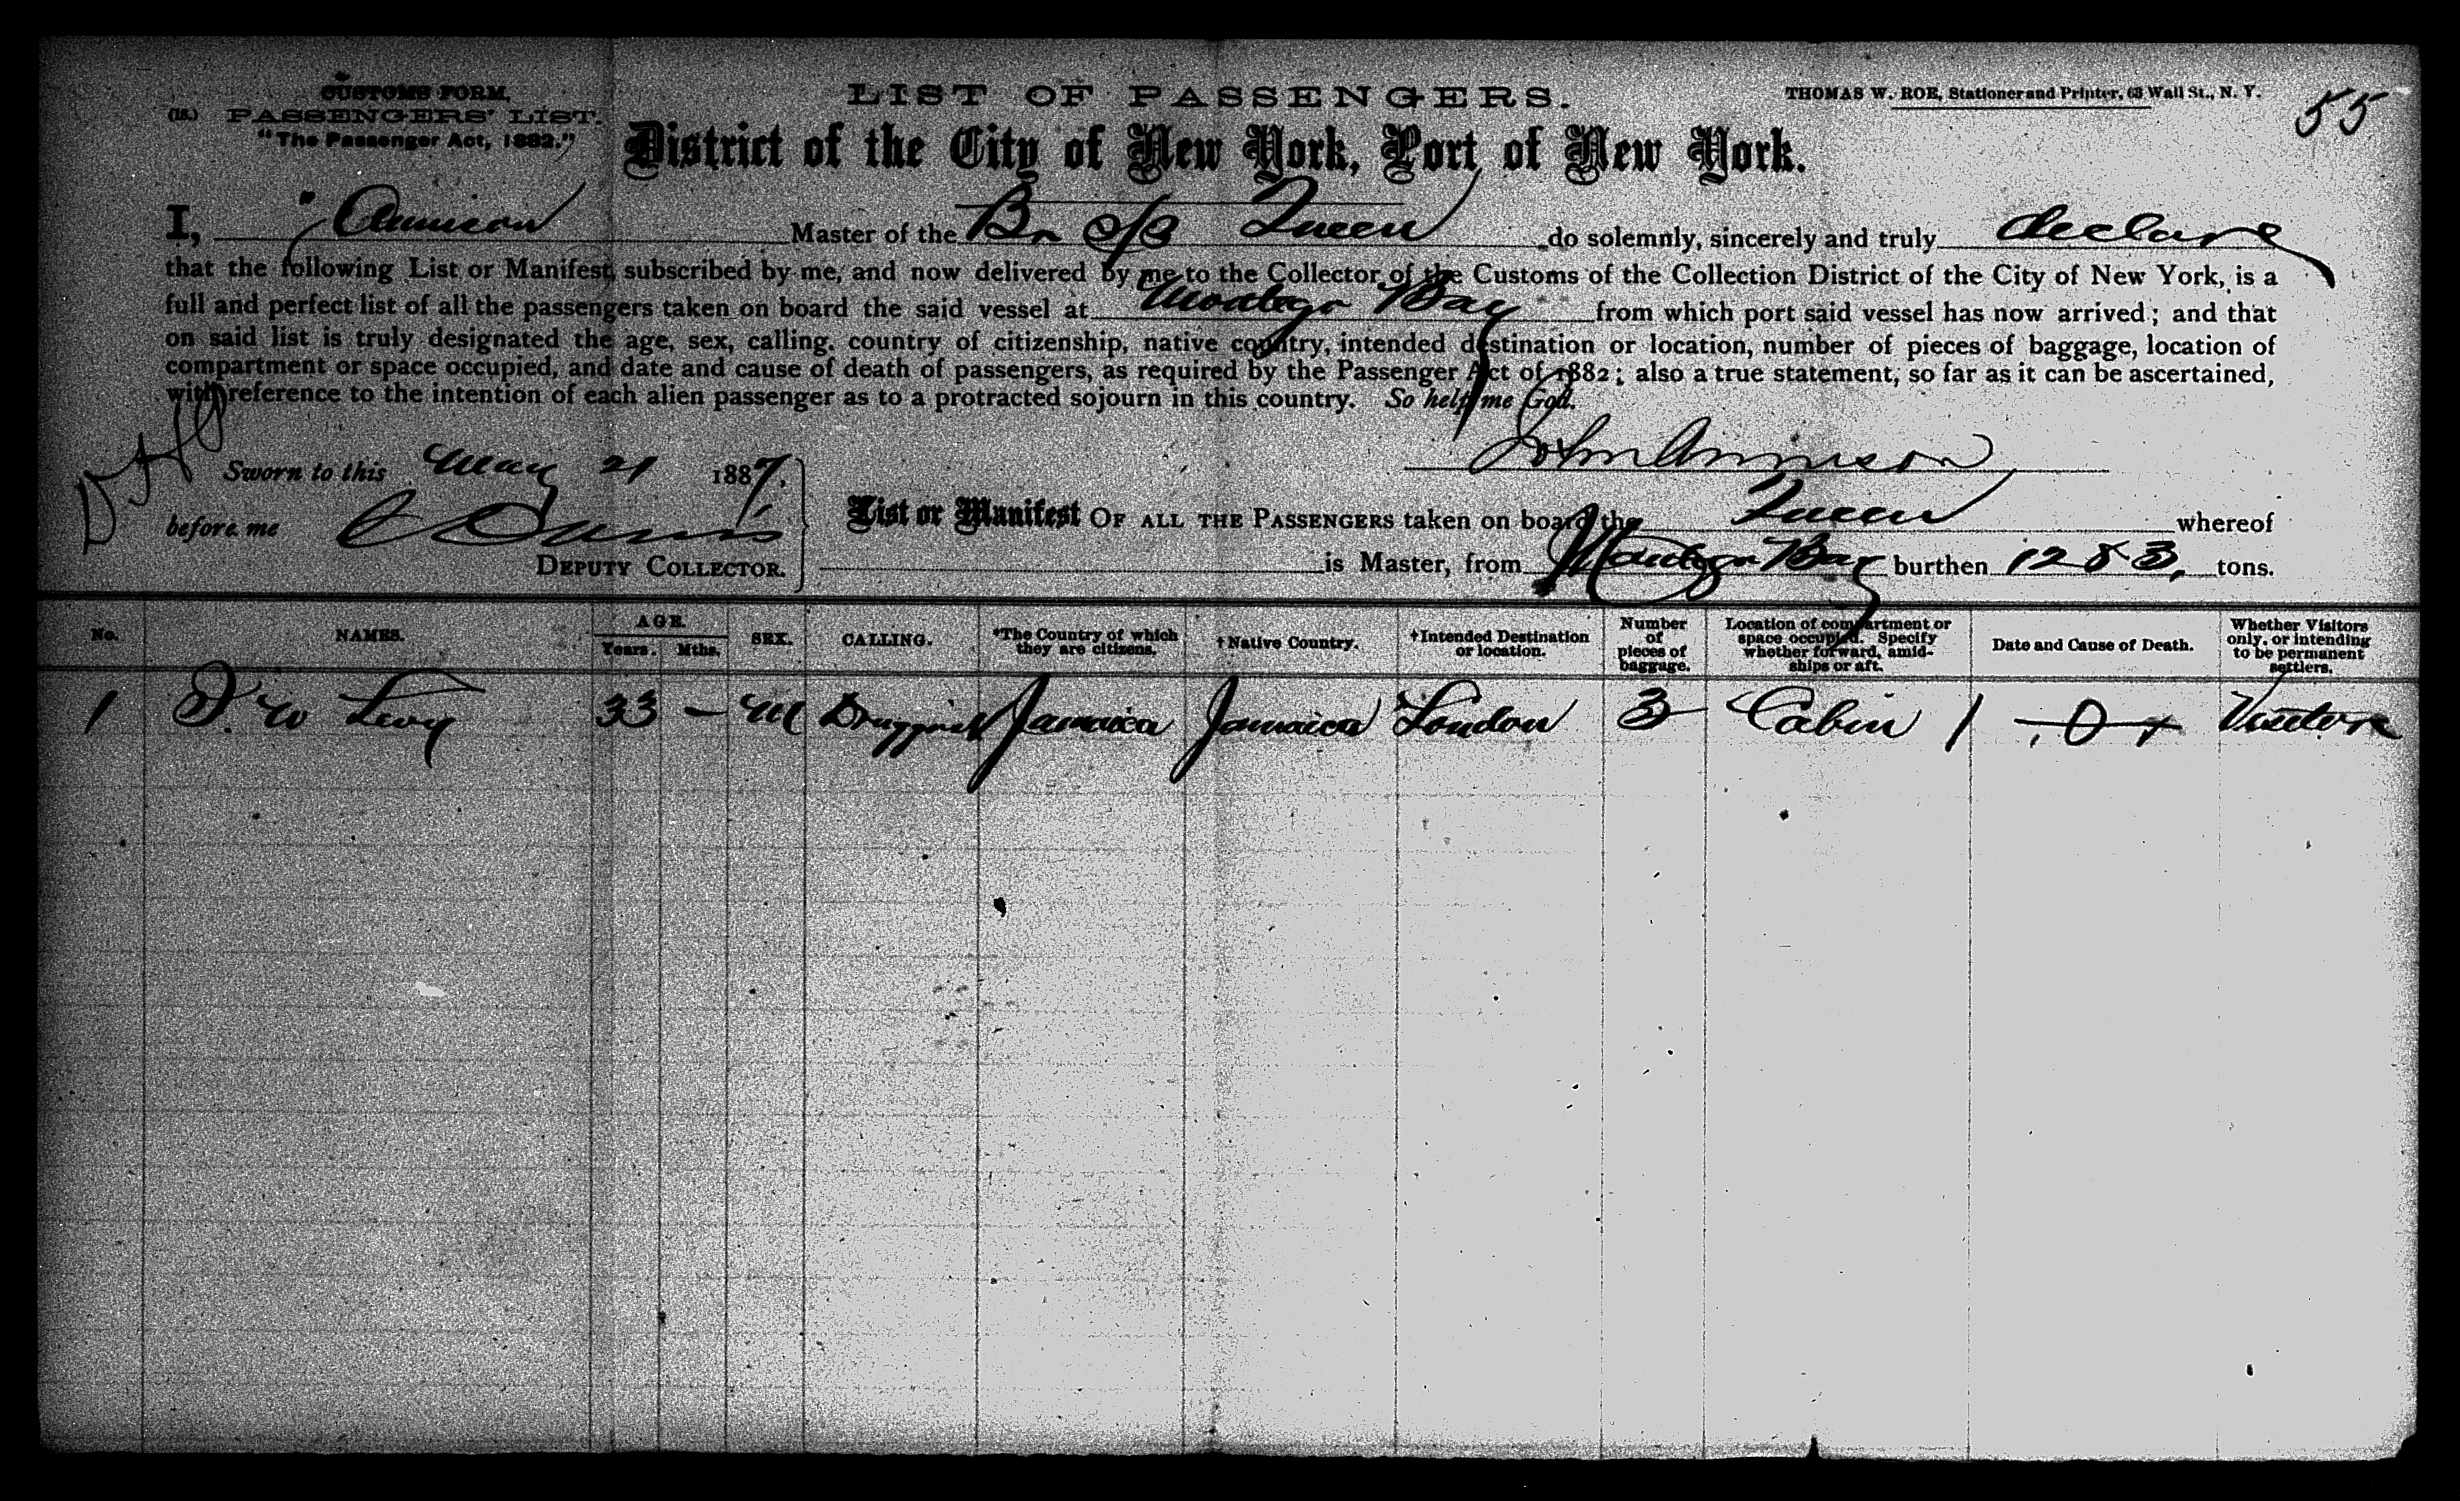 CUSTOMS FORM.
(18.) PASSENGERS' LIST.
"The Passenger Act, 1882."
LIST OF PASSENGERS.
THOMAS W. ROE, Stationer and Printer, 63 Wall St., N. Y.
55
District of the City of New York, Port of New York.
I, Master of the Br S/S Queen do solemnly, sincerely and truly declare
that the following List or Manifest, subscribed by me, and now delivered by me to the Collector of the Customs of the Collection District of the City of New York, is a
full and perfect list of all the passengers taken on board the said vessel at Montego Bay from which port said vessel has now arrived; and that
on said list is truly designated the age, sex, calling, country of citizenship, native country, intended destination or location, number of pieces of baggage, location of
compartment or space occupied, and date and cause of death of passengers, as required by the Passenger Act of 1882; also a true statement, so far as it can be ascertained,
with reference to the intention of each alien passenger as to a protracted sojourn in this country. So help me God.
John
Sworn to this May 21 1887.
before me
DEPUTY COLLECTOR.
List or Manifest OF ALL THE PASSENGERS taken on board the Queen whereof
is Master, from Montego Bay burthen 1283, tons.
No. NAMES. AGE. Years. Mths. SEX. CALLING. *The Country of which they are citizens. †Native Country. †Intended Destination or location. Number of pieces of baggage. Location of compartment or space occupied. Specify whether forward, amidships or aft. Date and Cause of Death. Whether Visitors only, or intending to be permanent settlers.
1 W Levy 33 — M Druggist Jamaica Jamaica London 3 Cabin 1 0 Visitor